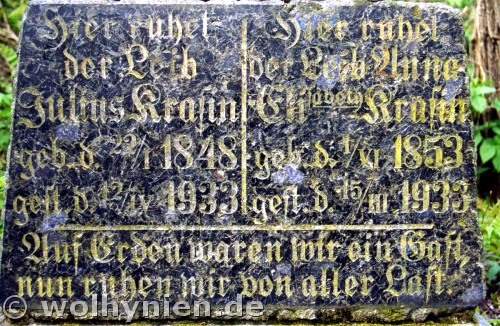 Hier ruhet
der Leib
Julius Krasin
geb. d. 29/I 1848
gest. d. 12/IV 1933
Hier ruhet
der Leib Anna
Elisabeth Krasin
geb. d. 1/XI 1853
gest. d. 15/III 1933
Auf Erden waren wir ein Gast,
nun ruhen wir von aller Last.
© wolhynien.de